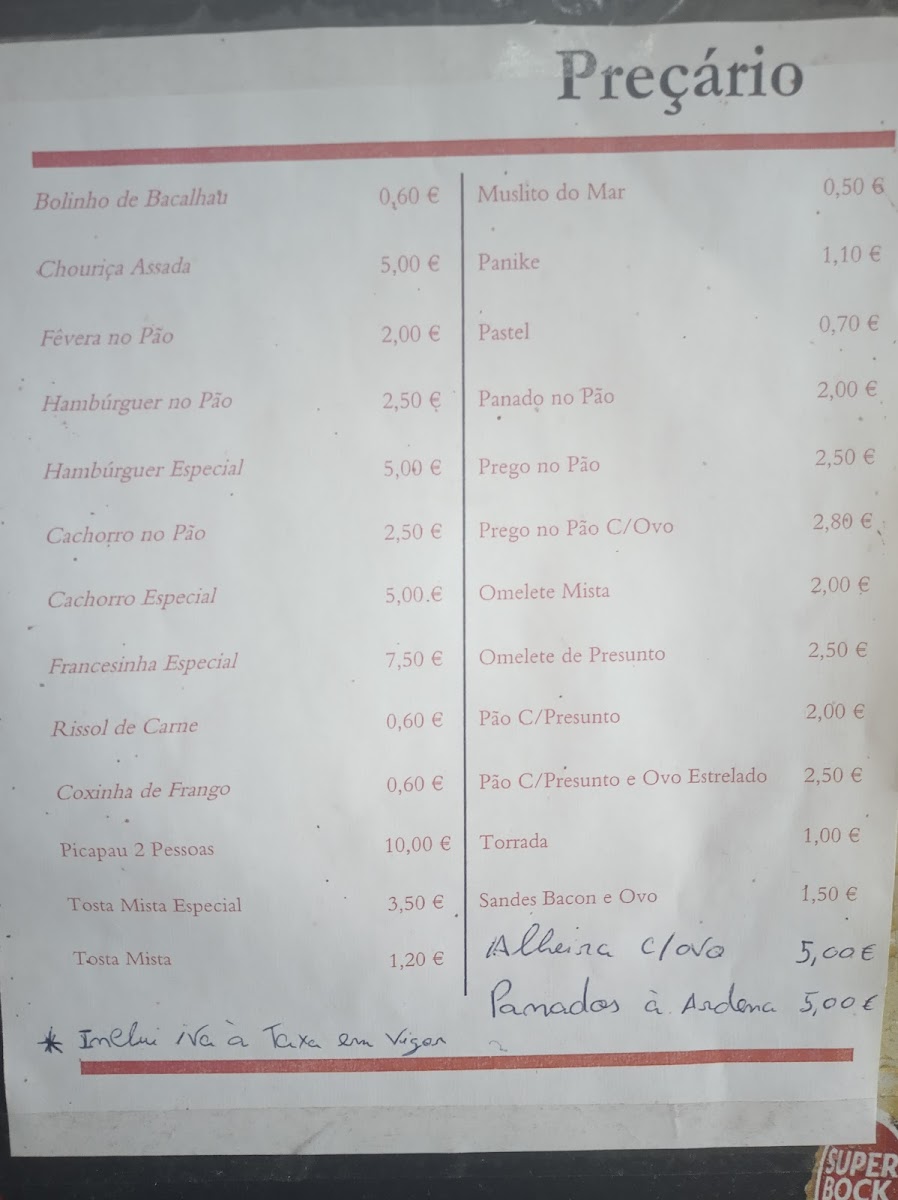 Preçário
Bolinho de Bacalhau 0,60 €
Chouriça Assada 5,00 €
Fêvera no Pão 2,00 €
Hambúrguer no Pão 2,50 €
Hambúrguer Especial 5,00 €
Cachorro no Pão 2,50 €
Cachorro Especial 5,00 €
Francesinha Especial 7,50 €
Rissol de Carne 0,60 €
Coxinha de Frango 0,60 €
Picapau 2 Pessoas 10,00 €
Tosta Mista Especial 3,50 €
Tosta Mista 1,20 €
Muslito do Mar 0,50 €
Panike 1,10 €
Pastel 0,70 €
Panado no Pão 2,00 €
Prego no Pão 2,50 €
Prego no Pão C/Ovo 2,80 €
Omelete Mista 2,00 €
Omelete de Presunto 2,50 €
Pão C/Presunto 2,00 €
Pão C/Presunto e Ovo Estrelado 2,50 €
Torrada 1,00 €
Sandes Bacon e Ovo 1,50 €
Alheira c/ovo 5,00€
Panados à Ardena 5,00€
* Inclui iva à Taxa em Vigor
SUPER
BOCK